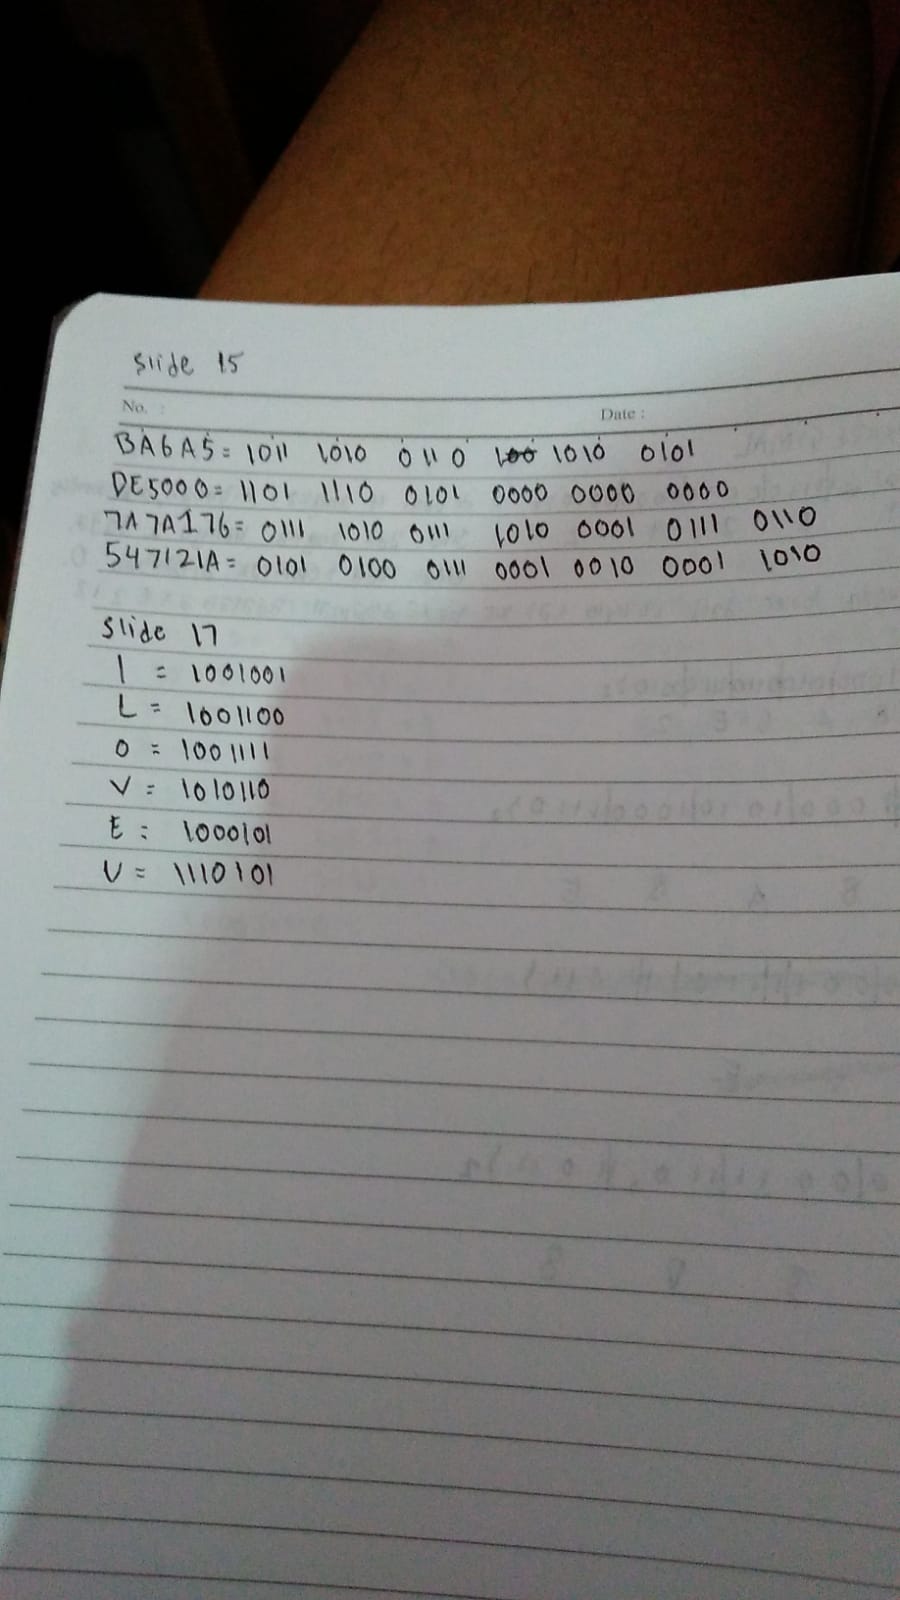 Slide 15
No. :
Date :
BA6A5 = 1011 1010 0110 1010 0101
DE5000 = 1101 1110 0101 0000 0000 0000
7A7A176 = 0111 1010 0111 1010 0001 0111 0110
547121A = 0101 0100 0111 0001 0010 0001 1010
Slide 17
I = 1001001
L = 1001100
O = 1001111
V = 1010110
E = 1000101
U = 1110101